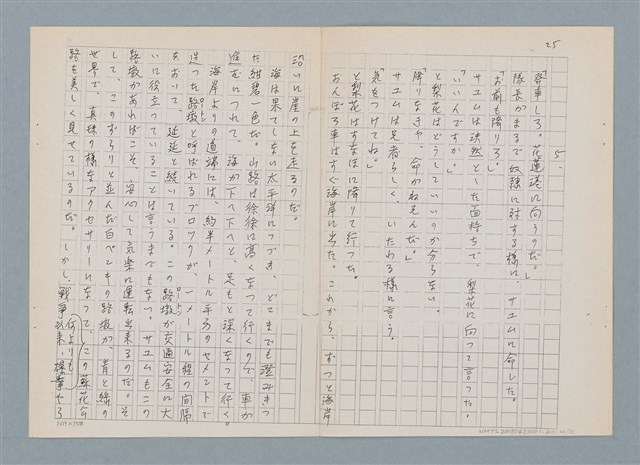 25
5.
「発車しろ。花蓮港に向うのだ。」
隊長がまるで奴隷に対する様に、サユムに命した。
「お前も降りろ」
サユムは決然とした面持ちで、梨花に向って言った。
「いいんですか。」
と梨花はどうしていいのか分らない。
「降りなきゃ、命がねえんだ。」
サユムは兄者らしく、いたわる様に言う。
「気をつけてね。」
と梨花はすなほに降りて行った。
おんぼろ車はすぐ海岸に出た。これから、ずっと海岸
沿いに崖の上を走るのだ。
海は果てしない太平洋につづき、どこまでも澄みきっ
た紺碧一色だ。山路は徐徐に高くなって行くので、車が
進むにつれて、海が下へ下へと、足もと深くなって行く。
海岸よりの道端には、約半メートル平方のセメントで
造った路墩と呼ばれるブロックが、一メートル程の間隔
をおいて、延延と続いている。この路墩が交通安全に大
いに役立っていることは言うまでもない。サユムもこの
路墩があればこそ、安心して気楽に運転出来るのだ。そ
して、このずらりと並んだ白ペンキの路墩が、青と緑の
世界で、真珠の様なアクセサリーになって、この蘇花公
路を美しく見せているのだ。しかし、戦争以来、何よりも